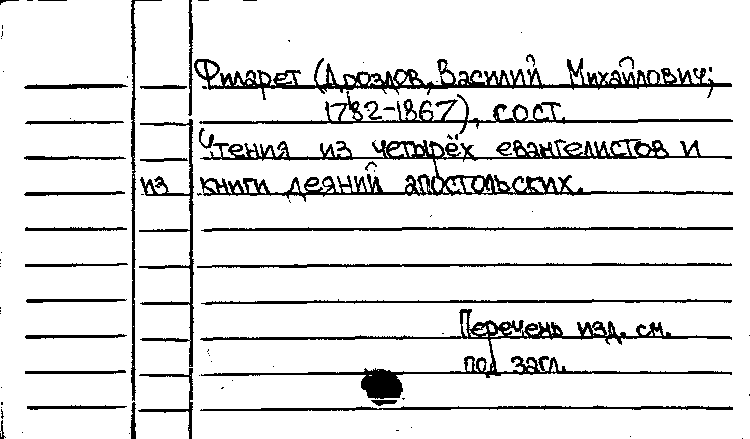 Филарет (Дроздов, Василий Михайлович;
1782-1867), сост.
Чтения из четырёх евангелистов и
из книги деяний апостольских.
Перечень изд. см.
под загл.